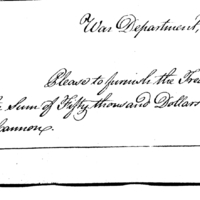 War Department,
Please to furnish the Trea
Sum of Fifty thousand Dollars
Cannon.